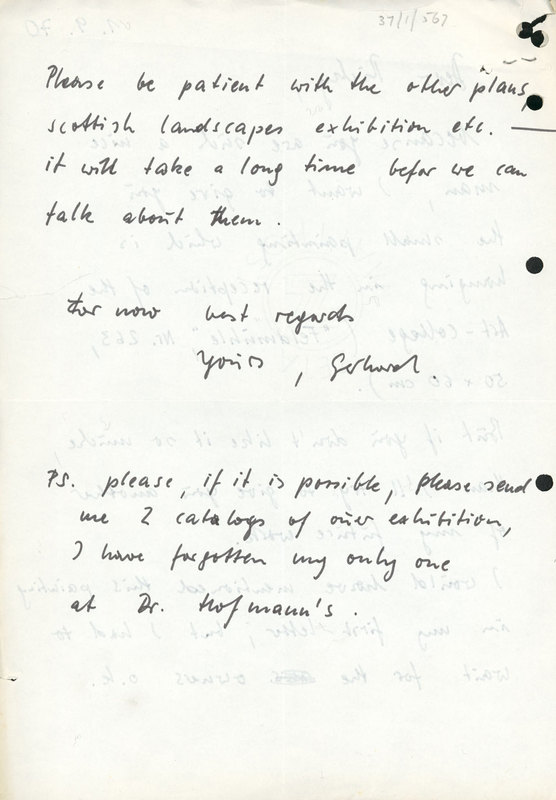 37/1/567
Please be patient with the other plans,
scottish landscapes exhibition etc. —
it will take a long time befor we can
talk about them.
For now best regards
Yours, Gerhard.
Ps. please, if it is possible, please send
me 2 catalogs of our exhibition,
I have forgotten my only one
at Dr. Hofmann's.